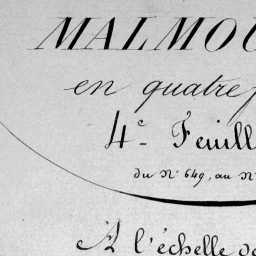 MALMOU
en quatre p
4e Feuill
du No 649, au No
A l'échelle de